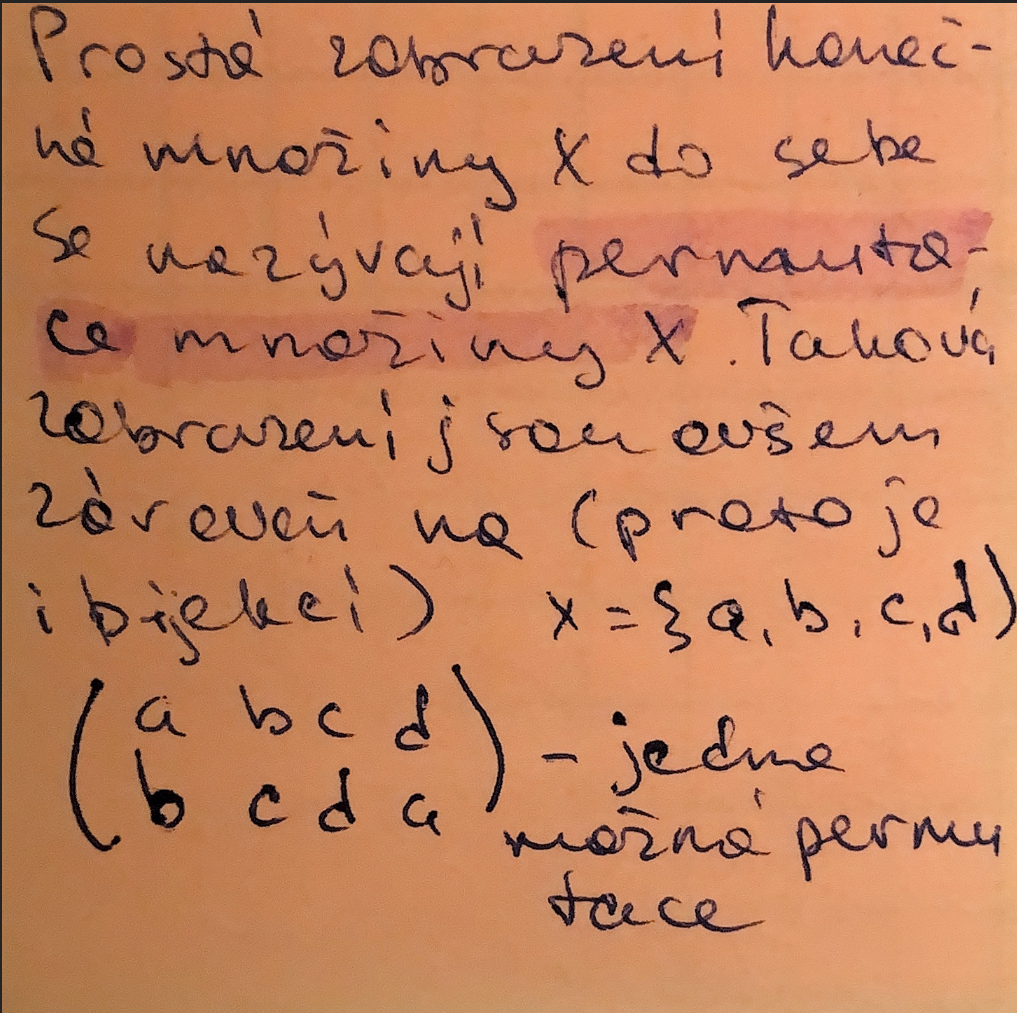 Prosté zobrazení koneč-
né množiny X do sebe
se nazývají permuta-
ce množiny X. Taková
zobrazení jsou ovšem
zároveň na (proto je
i bijekcí) x = {a, b, c, d)
(a b c d
b c d a) - jedna
možná permu
tace